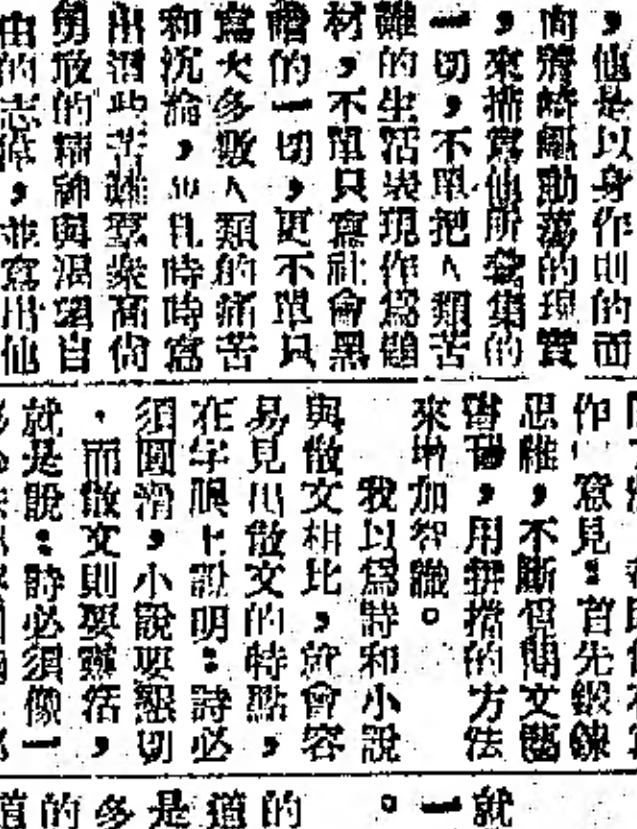 ，他是以身作則的面
向將崎嶇動蕩的現實
，來描寫他所蒐集的
一切，不單把人類苦
難的生活表現作爲題
材，不單只寫社會黑
暗的一切，更不單只
寫大多數人類的痛苦
和沉淪，并且時時寫
出這些苦難羣衆高尚
勇敢的精神與渴望自
由的志，並寫出他
作 意見：首先鍛鍊
思維，不斷 閱文藝
書刊，用拼搭的方法
來增加智識。
我以爲詩和小說
與散文相比，就會容
易見出散文的特點，
在字眼上說明：詩必
須圓滑，小說要懇切
，而散文則要靈活，
就是說：詩必須像一
就
一
。
的
道
是
多
的
道